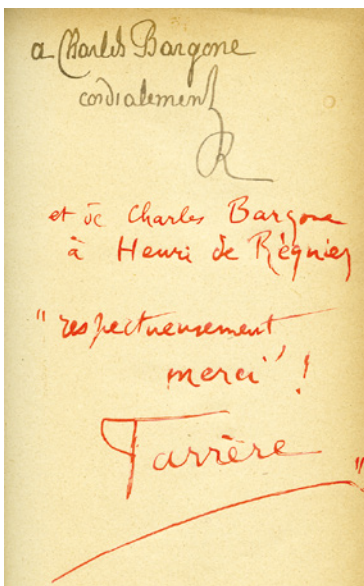 a Charles Bargone
cordialement
R
et de Charles Bargone
à Henri de Régnier
"respectueusement
merci"!
Farrère
"